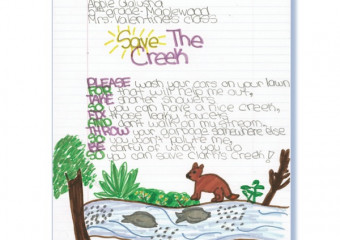 5th grade Maplewood
Mrs. Valentine's class
Save The
Creek
PLEASE wash your cars on your lawn
FOR that will help me out,
TAKE shorter showers
SO you can have a nice creek,
FIX those leaky faucets
AND don't walk on my stream.
THROW your garbage somewhere else
SO you don't pollute me,
BE careful of what you do
SO you can save Clark's Creek!